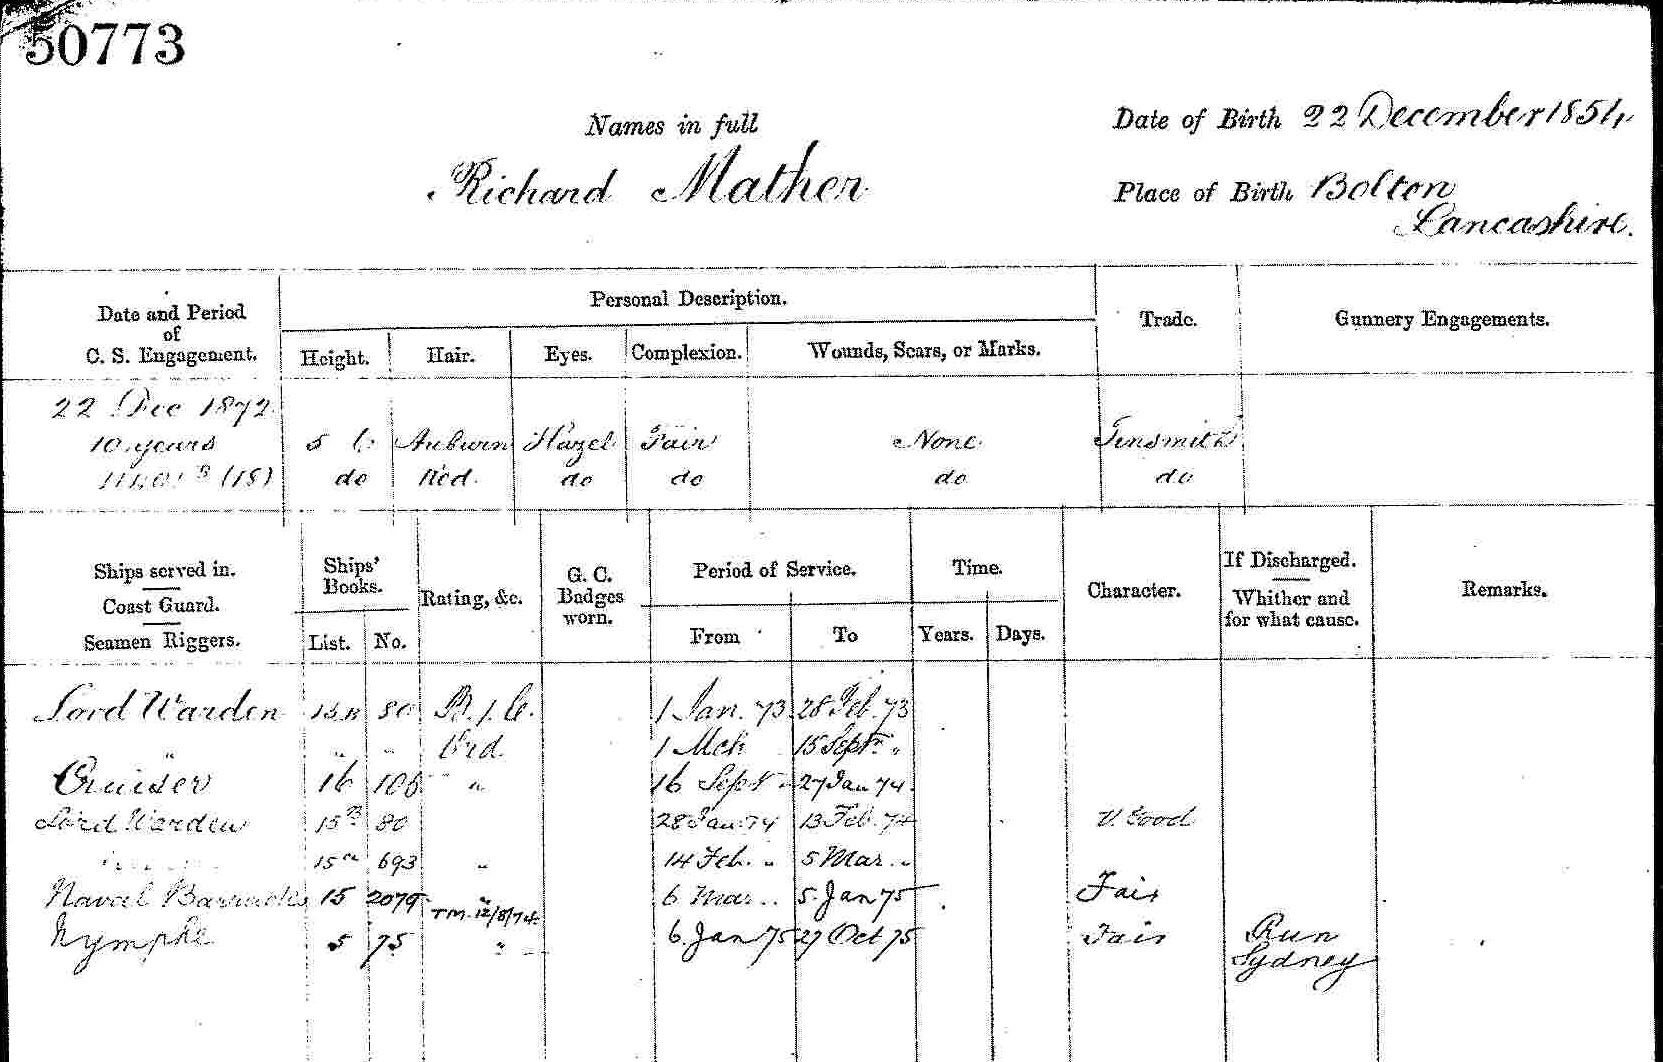 50773
Names in full
Date of Birth 22 December 1854
Richard Mather
Place of Birth Bolton
Lancashire.
Date and Period of C. S. Engagement.
Personal Description.
Trade.
Gunnery Engagements.
Height.
Hair.
Eyes.
Complexion.
Wounds, Scars, or Marks.
22 Dec 1872
10 years 5 6 Auburn Hazel Fair None Tinsmith
(18) do Red. do do do do
Ships served in.
Coast Guard.
Seamen Riggers.
Ships' Books.
List. No.
Rating, &c.
G. C. Badges worn.
Period of Service.
From To
Time.
Years. Days.
Character.
If Discharged.
Whither and for what cause.
Remarks.
Lord Warden 80 B.1.C. 1 Jan. 73 28 Feb. 73
" " " Ord. 1 Mch 15 Sept. "
Cruiser 16 106 " 16 Sept " 27 Jan 74
Lord Warden 15 B 80 28 Jan. 74 13 Feb. 74 V. Good
693 " 14 Feb. " 5 Mar. "
Naval Barracks 15 2079 " 6 Mar. " 5 Jan 75 Fair
TM. 12/8/74
Nymphe 5 75 " 6 Jan 75 27 Oct 75 Fair Run
Sydney